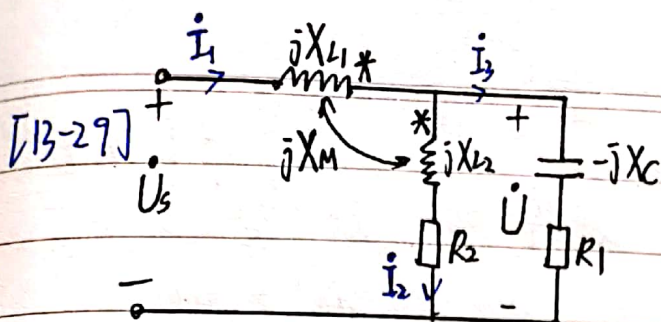 İ₁ jX_L₁ * İ₃
[13-29] + * +
jX_M jX_L₂ -jX_C
U̇s U̇
R₂ R₁
İ₂
- -